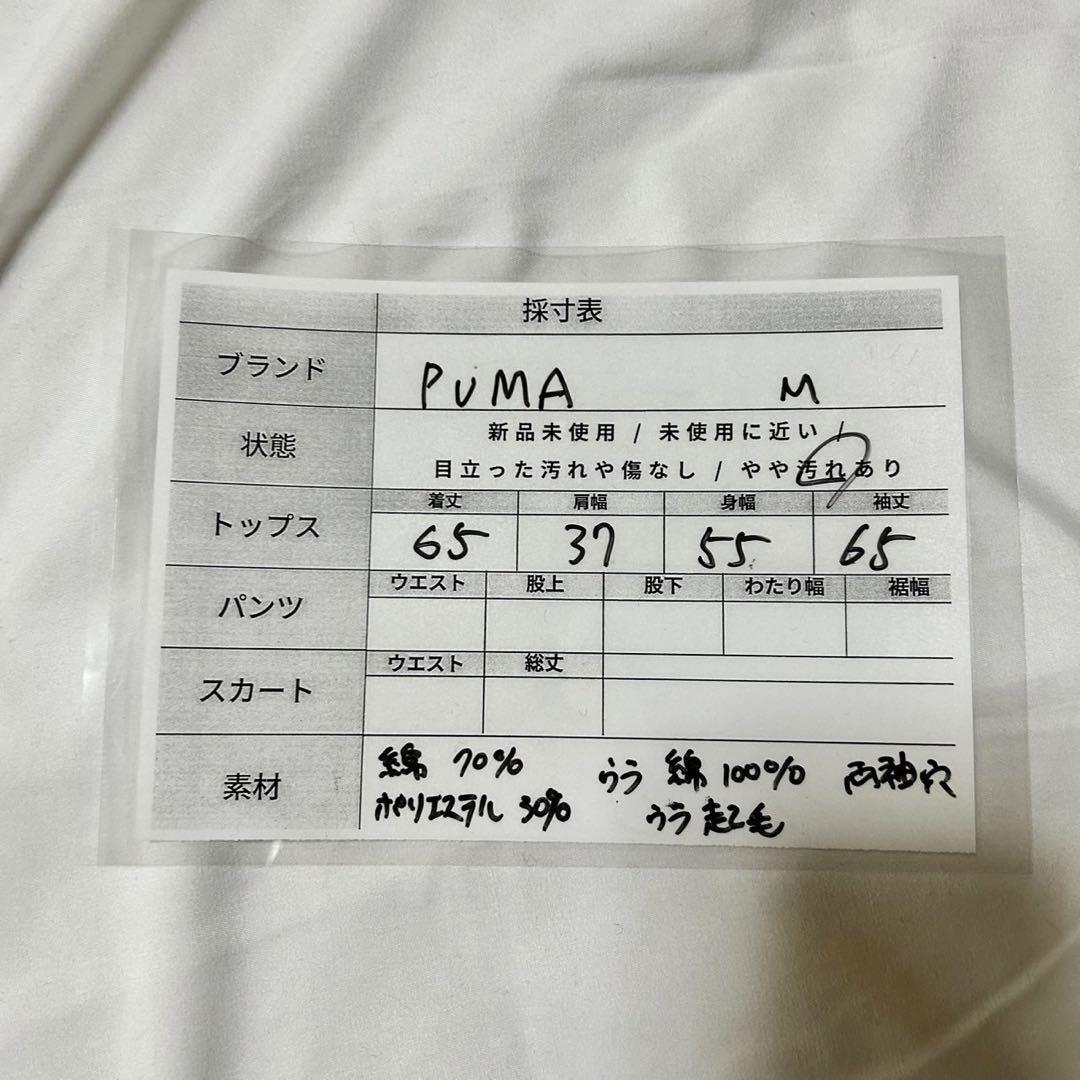 採寸表
ブランド PUMA M
状態 新品未使用 / 未使用に近い /
目立った汚れや傷なし / やや汚れあり
トップス 着丈 肩幅 身幅 袖丈
65 37 55 65
パンツ ウエスト 股上 股下 わたり幅 裾幅
スカート ウエスト 総丈
素材 綿 70% ウラ 綿 100% 両袖穴
ポリエステル 30% ウラ起毛